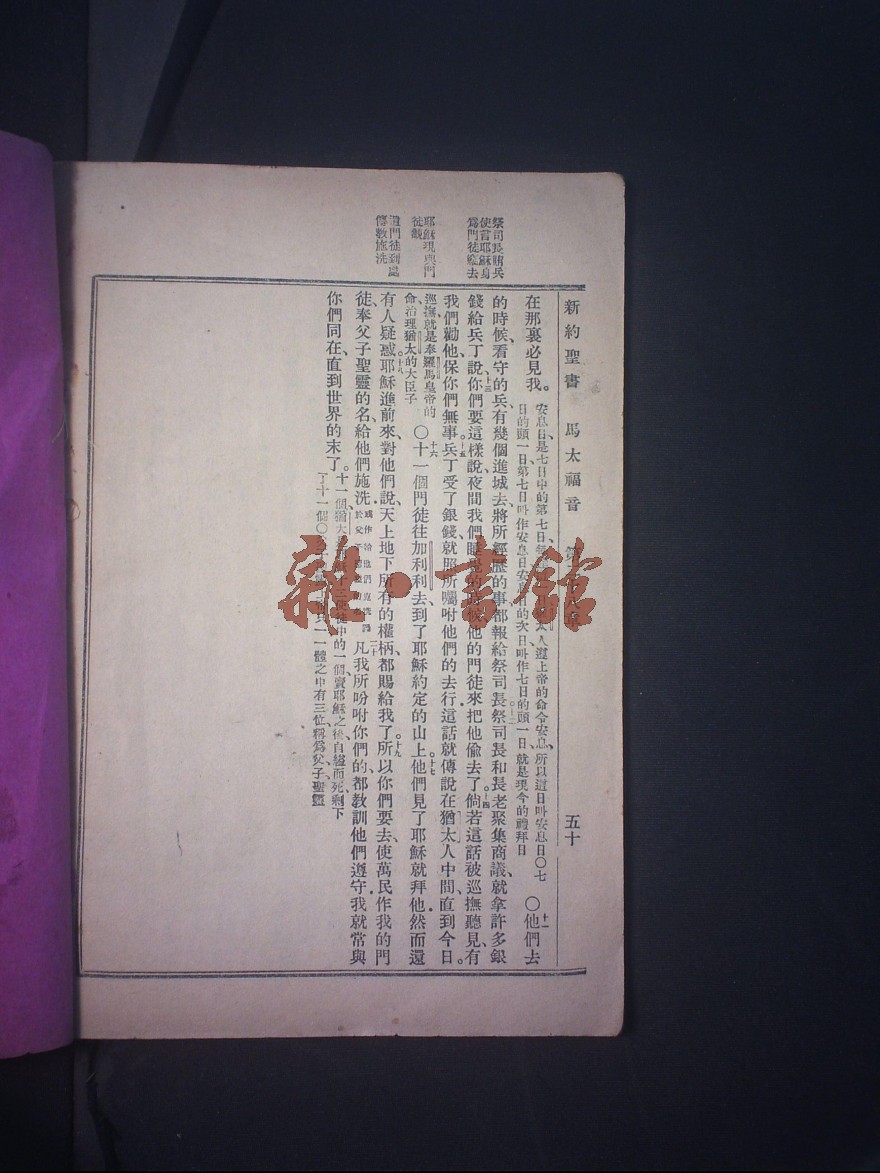 新約聖書 馬太福音 第 五十
祭司長賄兵
使言耶穌身
爲門徒竊去
耶穌現與門
徒觀
遣門徒到處
傳教施洗
在那裏必見我。
安息日、是七日中的第七日、
太人遵上帝的命令安息、所以這日叫安息日〇七
日的頭一日第七日叫作安息日安息日的次日叫作七日的頭一日、就是現今的禮拜日
〇十一他們去
的時候、看守的兵、有幾個進城去、將所經歷的事、都報給祭司長。十二祭司長和長老聚集商議、就拿許多銀
錢給兵丁、十三說、你們要這樣說、夜間我們睡覺的時候、他的門徒來把他偷去了。十四倘若這話被巡撫聽見、有
我們勸他、保你們無事。十五兵丁受了銀錢、就照所囑咐他們的去行、這話就傳說在猶太人中間、直到今日。
巡撫、就是奉羅馬皇帝的
命、治理猶太的大臣子
〇十六十一個門徒往加利利去、到了耶穌約定的山上。十七他們見了耶穌就拜他、然而還
有人疑惑。十八耶穌進前來、對他們說、天上地下所有的權柄、都賜給我了。十九所以你們要去、使萬民作我的門
徒、奉父子聖靈的名、給他們施洗、
二十凡我所吩咐你們的、都教訓他們遵守、我就常與
你們同在、直到世界的末了。
十一個、猶大
十二使徒中的一個、賣耶穌之後、自縊而死、剩下
了十一個〇
一體之中有三位、稱爲父子聖靈
雜·書館